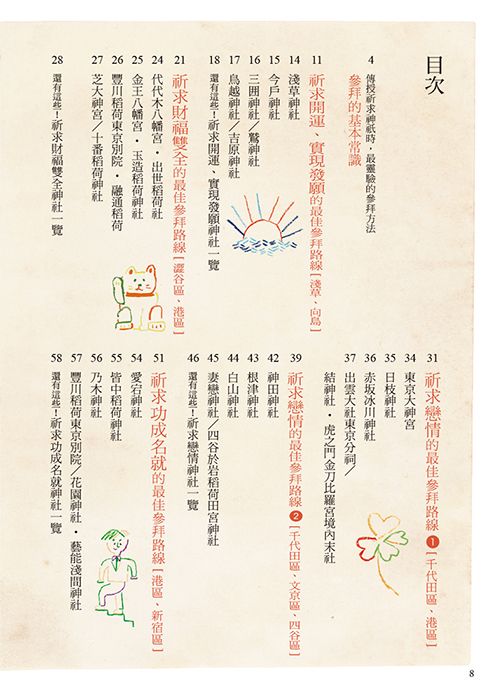 目次
4 傳授祈求神祇時，最靈驗的參拜方法
參拜的基本常識
11 祈求開運、實現發願的最佳參拜路線［淺草、向島］
14 淺草神社
15 今戶神社
16 三囲神社／鷲神社
17 鳥越神社／吉原神社
18 還有這些！祈求開運、實現發願神社一覽
21 祈求財福雙全的最佳參拜路線［澀谷區、港區］
24 代代木八幡宮・出世稻荷社
25 金王八幡宮・玉造稻荷神社
26 豐川稻荷東京別院・融通稻荷
27 芝大神宮／十番稻荷神社
28 還有這些！祈求財福雙全神社一覽
31 祈求戀情的最佳參拜路線❶［千代田區、港區］
34 東京大神宮
35 日枝神社
36 赤坂冰川神社
37 出雲大社東京分祠／
結神社・虎之門金刀比羅宮境內末社
39 祈求戀情的最佳參拜路線❷［千代田區、文京區、四谷區］
42 神田神社
43 根津神社
44 白山神社
45 妻戀神社／四谷於岩稻荷田宮神社
46 還有這些！祈求戀情神社一覽
51 祈求功成名就的最佳參拜路線［港區、新宿區］
54 愛宕神社
55 皆中稻荷神社
56 乃木神社
57 豐川稻荷東京別院／花園神社・藝能淺間神社
58 還有這些！祈求功成名就神社一覽
8